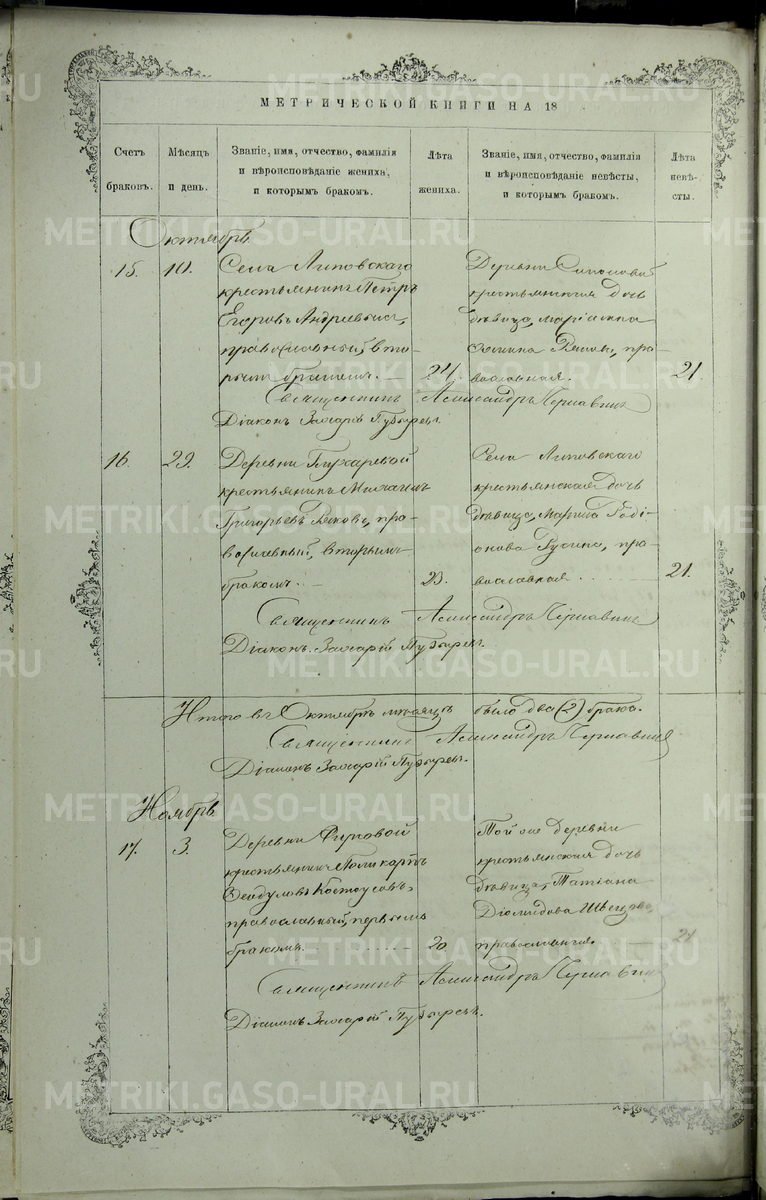 МЕТРИЧЕСКОЙ КНИГИ НА 18
Счетъ браковъ.
Мѣсяцъ и день.
Званіе, имя, отчество, фамилія и вѣроисповѣданіе жениха, и которымъ бракомъ.
Лѣта жениха.
Званіе, имя, отчество, фамилія и вѣроисповѣданіе невѣсты, и которымъ бракомъ.
Лѣта невѣсты.
Октябрь
15. 10.
Села Липовскаго
крестьянинъ Петръ
Егоровъ
православный, вто-
рымъ бракомъ.
24.
Деревни
крестьянская дочь
дѣвица, Маріамна
пра-
вославная.
21.
Священникъ Александръ Чернавинъ
Діаконъ Захарій Пузыревъ.
16. 29.
Деревни
крестьянинъ Михаилъ
Григорьевъ пра-
вославный, вторымъ
бракомъ.
23.
Села Липовскаго
крестьянская дочь
дѣвица, Марина Роді-
онова пра-
вославная
21.
Священникъ Александръ Чернавинъ
Діаконъ Захарій Пузыревъ.
Итого въ Октябрѣ мѣсяцѣ было два (2) брака.
Священникъ Александръ Чернавинъ
Діаконъ Захарій Пузыревъ.
Ноябрь
17. 3.
Деревни Фирсовой
крестьянинъ Поликарпъ
Ѳеодуловъ Костоусовъ,
православный, первымъ
бракомъ.
20
Той же деревни
крестьянская дочь
дѣвица, Татіана
Діомидова Швецова,
православная.
21
Священникъ Александръ Чернавинъ
Діаконъ Захарій Пузыревъ.
METRIKI.GASO-URAL.RU